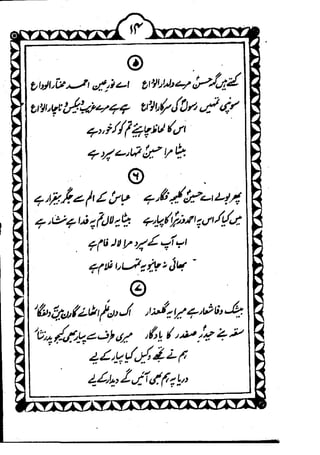 ۱۳
۵
کہتے ہیں گہ حسنؑ مرے دلدار الوداع اے نورِ عین احمدِ مختار الوداع
سونپی تمہیں رسولؐ کی سرکار الوداع ہے ہے مرے غریب و بیکس و ناچار الوداع
اس کا لحاظ چاہیئے تم کو کہ خورد ہے
بیٹا مرا حسینؑ تمہارے سپرد ہے
۶
پھر بولے اے حسینؑ کلیجہ فگار ہے عباسؑ کے الم سے جگر بیقرار ہے
میں کیا کہ اس پہ احمد و زہراؑ کا پیار ہے بیٹا یہ لال تم پہ فدا ہے نثار ہے
اب آپ کے سپرد مرا لالہ فام ہے
بھائی نہ جانیو یہ تمہارا غلام ہے
۷
بیشک وفا شعار ہے میرا یہ گلعذار اک دن علم اٹھائے گا رن میں دلفگار
سقہ بنے حیدرِ صفدر کا یادگار میری طرف سے پیار بھی کیجو پدر نثار
ہم نے تجھے وکیل کیا پیار کے لیے
دریا پہ ہم بھی آئیں گے دیدار کے لیے